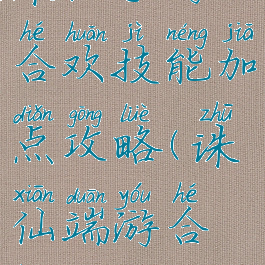 hé huān jì néng jiā
合欢技能加
diǎn gōng lüè zhū
点攻略(诛
xiān duān yóu hé
仙端游合